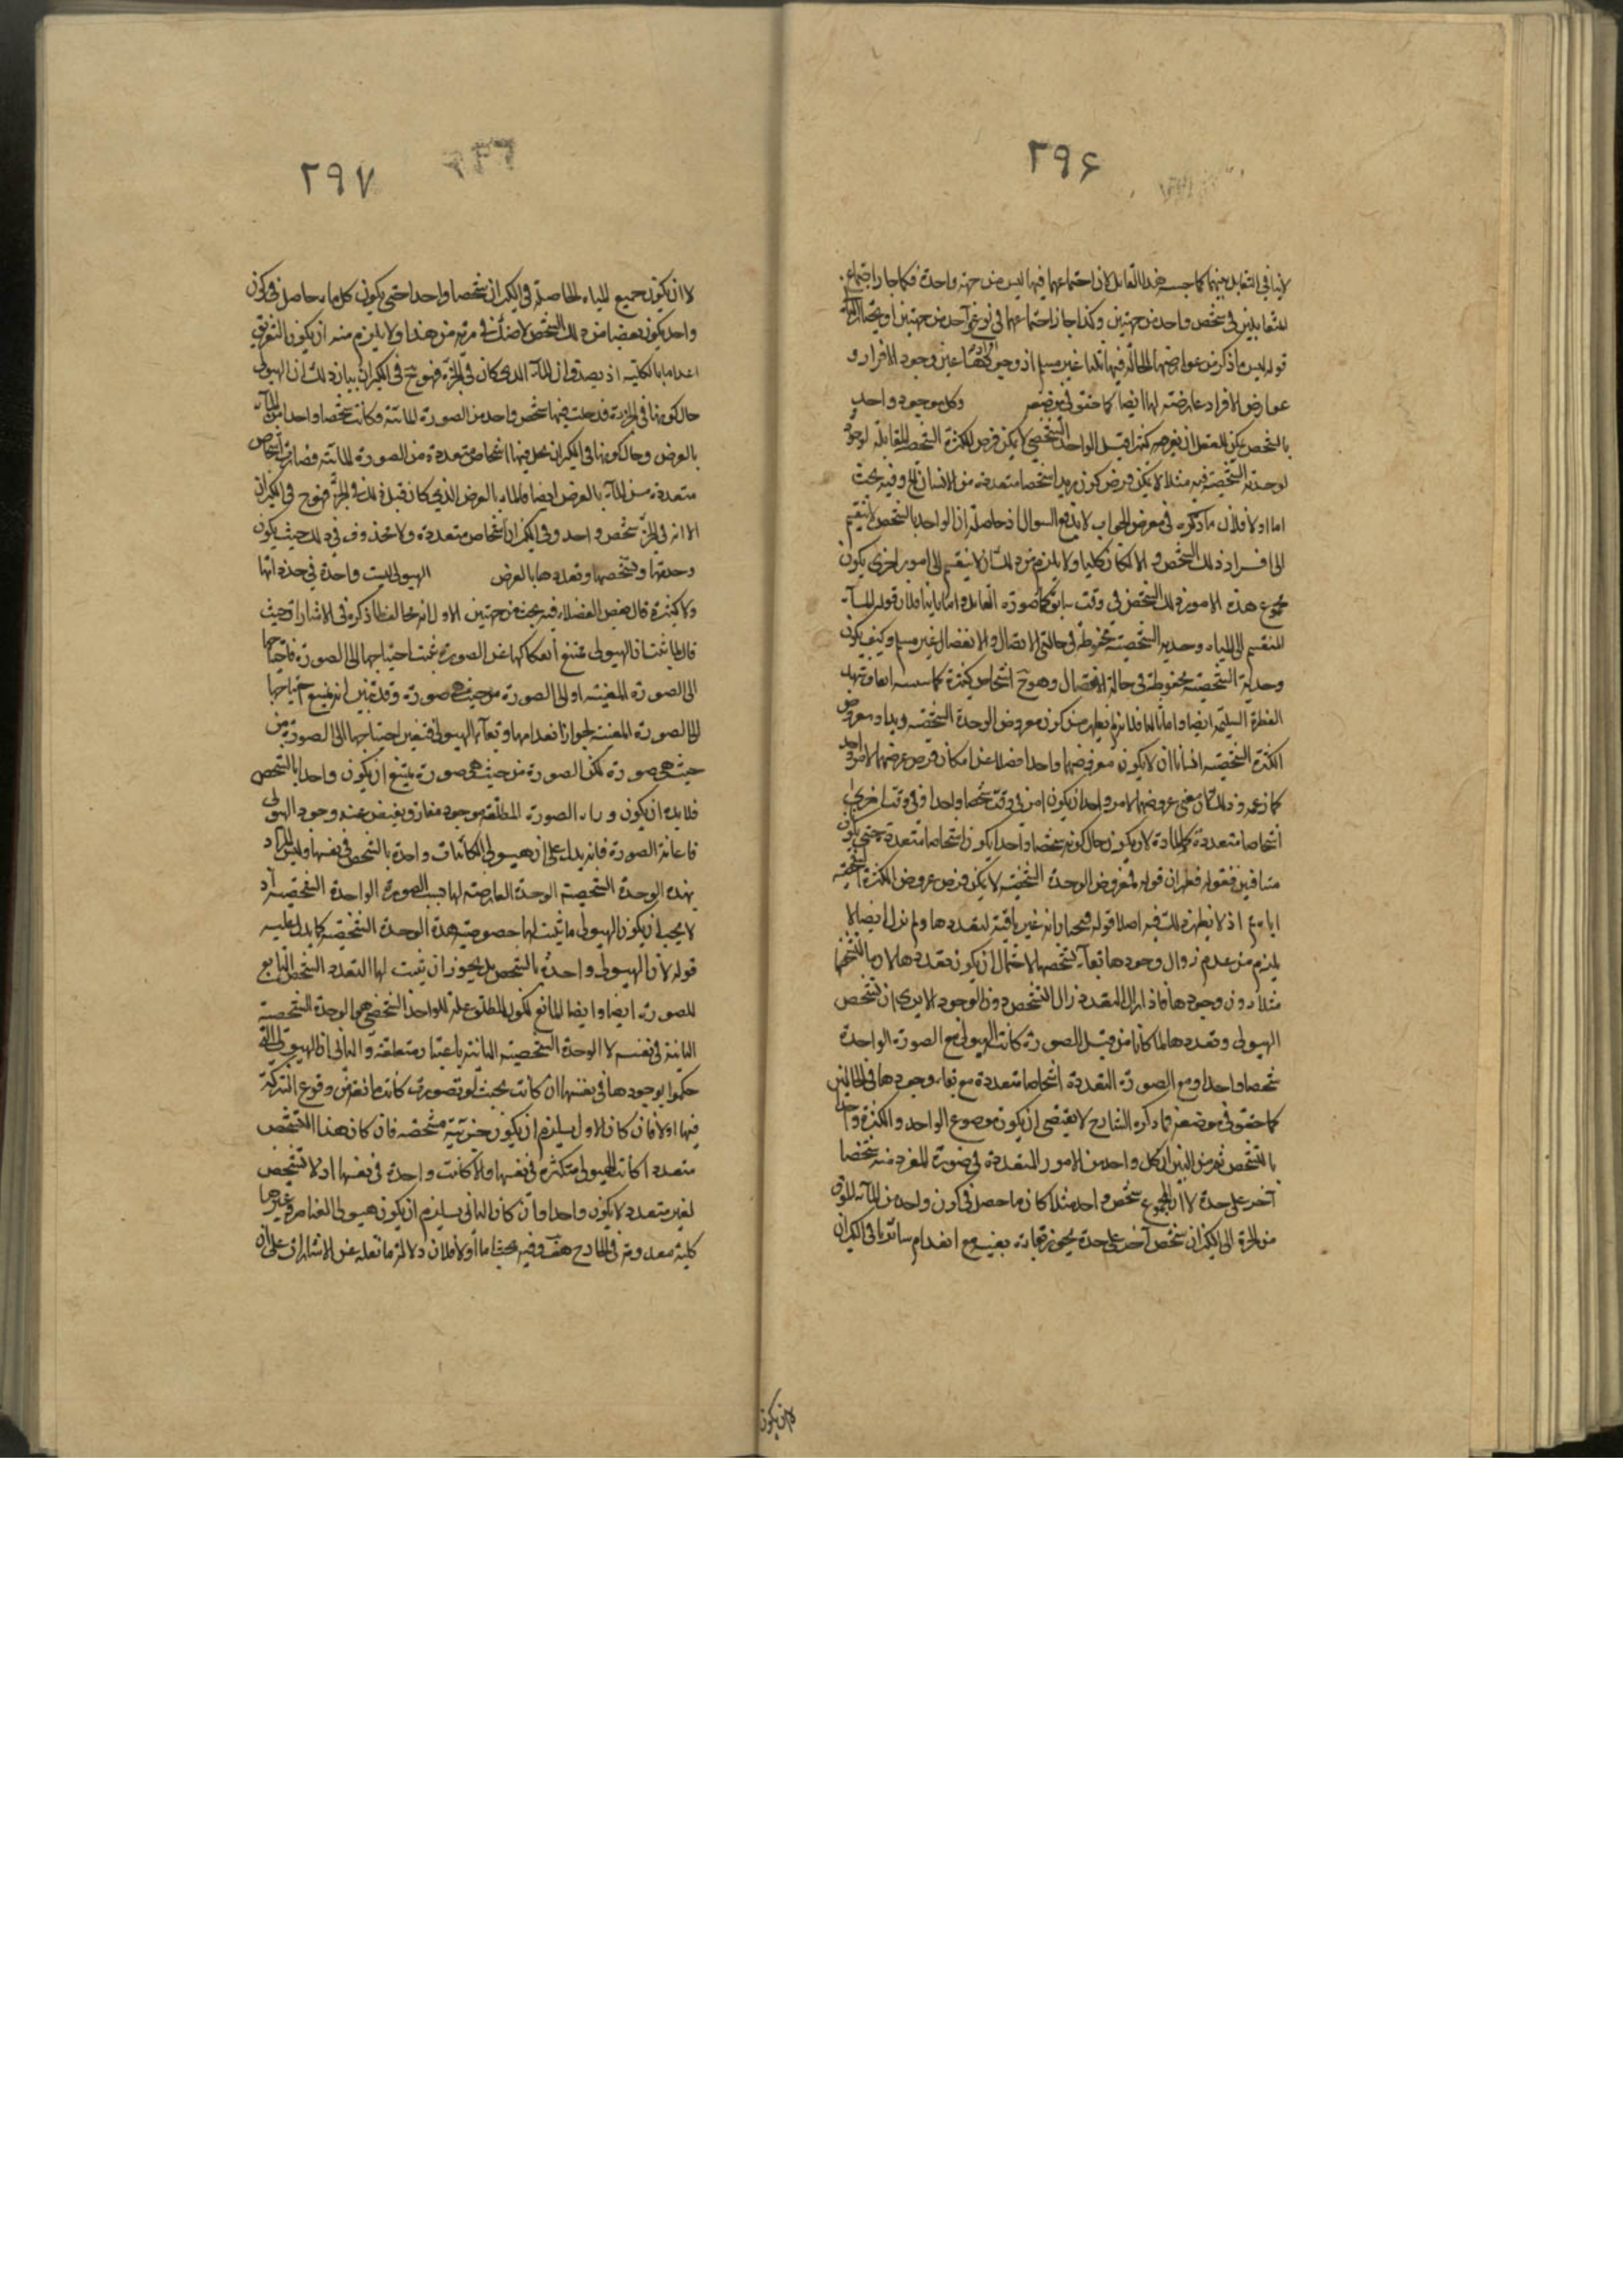 ٢٩۶
لا ينافي التقابل بينهما كما حسبه هذا القائل لان اجتماعهما فيها ليس من جهة واحدة فكما جاز اجتماع
المتقابلين في شخص واحد من جهتين وكذا جاز اجتماعهما في نوع آخر من جهتين
قوله ليس ما ذكر من عوارضها الحالة فيها قلنا غير مسلم اذ وجودها عين وجود الافراد و
عوارض الافراد عارضة لها ايضا كما حقق في موضعه وكل موجود واحد
بالشخص يمكن للعقل ان يفرضه كثيرا قيل الواحد الشخصي لا يمكن فرض الكثرة الشخصية المقابلة
لوحدته الشخصية فيه مثلا لا يمكن فرض كون زيد اشخاصا متعددة من الانسان وفيه بحث
اما اولا فلان ما ذكره في معرض الجواب لا يدفع السوال اذ حاصله ان الواحد بالشخص لا ينقسم
الى افراد ذلك الشخص والا لكان كليا ولا يلزم من ذلك ان لا ينقسم الى امور اخرى يكون
مجموع هذه الامور ذلك الشخص في وقت سابق كما صوره القائل واما ثانيا فلان قوله الماء
المنقسم الى المياه وحدته الشخصية محفوظة في حالتي الاتصال والانفصال غير مسلم وكيف يكون
وحدته الشخصية محفوظة في حالة الانفصال وهو ح اشخاص كثيرة
الفطرة السليمة ايضا واما ثالثا فلانه لم يظهر من كون معروض الوحدة الشخصية زيدا ومعروض
الكثرة الشخصية اناسا ان لا يكون معروضهما واحدا فضلا عن امكان فرض عروضهما لامر واحد
كما زعمه وذلك لان معنى عروضهما لامر واحد ان يكون امر في وقت شخصا واحدا وفي وقت اخر
اشخاصا متعددة كالمادة لا ان يكون حال كونه شخصا واحدا يكون اشخاصا متعددة حتى يكون
متنافيين فقوله فظهر ان قوله لمعروض الوحدة الشخصية لا يمكن فرض عروض الكثرة الشخصية
اياه مم اذ لا يظهر ذلك فيه اصلا قوله فيجاء انه غير باقية لتعددها ولم نزل ايضا لا
يلزم من عدم زوال وجودها بقاء تشخصها لاحتمال ان يكون تعددها لازما لتشخصها
مثلا دون وجودها فاذا زال التعدد زال التشخص دون الوجود الا يرى ان تشخص
الهيولى وتعددها لما كانا من قبل الصورة كانت الهيولى مع الصورة الواحدة
شخصا واحدا ومع الصورة المتعددة اشخاصا متعددة مع بقاء وجودها في الحالتين
كما حقق في موضعه فما ذكره الشارح لا يقتضي ان يكون موضوع الواحد والكثرة واحدا
بالشخص ثم من البين ان كل واحد من الامور المتعددة في صورة المفرد منه شخصا
آخر على حدة لا ان المجموع شخص واحد مثلا كان ما حصل في كوز واحد من الماء المفرق
من الجرة الى الكيزان شخص آخر على حدة يجوز بقاءه بعينه مع انعدام سائر ما في الكيزان
لا ان يكون
٢٩٧
لا ان يكون جميع المياه الحاصلة في الكيزان شخصا واحدا حتى يكون كل ماء حاصل في كوز
واحد يكون بعضا من ذلك الشخص لا ضنك في مرية من هذا ولا يلزم منه ان يكون التفريق
اعداما بالكلية اذ يصدق ان الماء الذي كان في الجرة فهو ح في الكيزان بيان ذلك ان الهيولى
حال كونها في الجرة قد حلت فيها شخص واحد من الصورة المائية وكانت شخصا واحدا من الماء
بالعرض وحال كونها في الكيزان يحل فيها اشخاص متعددة من الصورة المائية فصارت اشخاص
متعددة من الماء بالعرض ايضا فالماء بالعرض الذي كان قبل ذلك في الجرة فهو ح في الكيزان
الا انه في الجرة شخص واحد وفي الكيزان اشخاص متعددة ولا محذور في ذلك حيث يكون
وحدتها وتشخصها وتعددها بالعرض الهيولى ليست واحدة في حد ذاتها
ولا كثيرة قال بعض الفضلاء فيه بحث من جهتين الاول انه مخالف لما ذكره في الاشارات حيث
قال لما ثبت ان الهيولى يمتنع انفكاكها عن الصورة ثبت احتياجها الى الصورة فاحتياجها
الى الصورة المعينة او الى الصورة من حيث هي صورة وقد تبين انه يمتنع احتياجها
الى الصورة المعينة لجواز انعدامها وبقاء الهيولى فتعين احتياجها الى الصورة من
حيث هي صورة لكن الصورة من حيث هي صورة يمتنع ان يكون واحدا بالشخص
فلا بد ان يكون وراء الصورة المطلقة موجود مفارق يفيض عنه وجود الهيولى
باعانة الصورة فانه يدل على ان هيولى الكائنات واحدة بالشخص في نفسها وليس المراد
بهذه الوحدة الشخصية الوحدة العارضة لها بسبب الصورة الواحدة الشخصية اذ
لا يجب ان يكون الهيولى ما ثبت لها خصوصية هذه الوحدة الشخصية كما يدل عليه
قوله لان الهيولى واحدة بالشخص بل يجوز ان يثبت لها التعدد الشخصي التابع
للصورة ايضا وايضا المانع لكون المطلق علة للواحد الشخصي هو الوحدة الشخصية
الثابتة في نفسه لا الوحدة الشخصية الثابتة باعتبار متعلقه والثاني ان الهيولى التي
حكموا بوجودها في نفسها ان كانت بحيث لو تصورت كانت مانعة من وقوع الشركة
فيها او لا فان كان الاول يلزم ان يكون جزئية مشخصة فان كان هذا التشخص
متعددا كانت الهيولى متكثرة في نفسها والا كانت واحدة في نفسها اذ لا تشخص
لغير متعدد لا يكون واحدا وان كان الثاني يلزم ان يكون هيولى العناصر وغيرها
كلية معدومة في الخارج هف وفيه بحث اما اولا فلان دلالة ما نقله عن الاشارات على ان